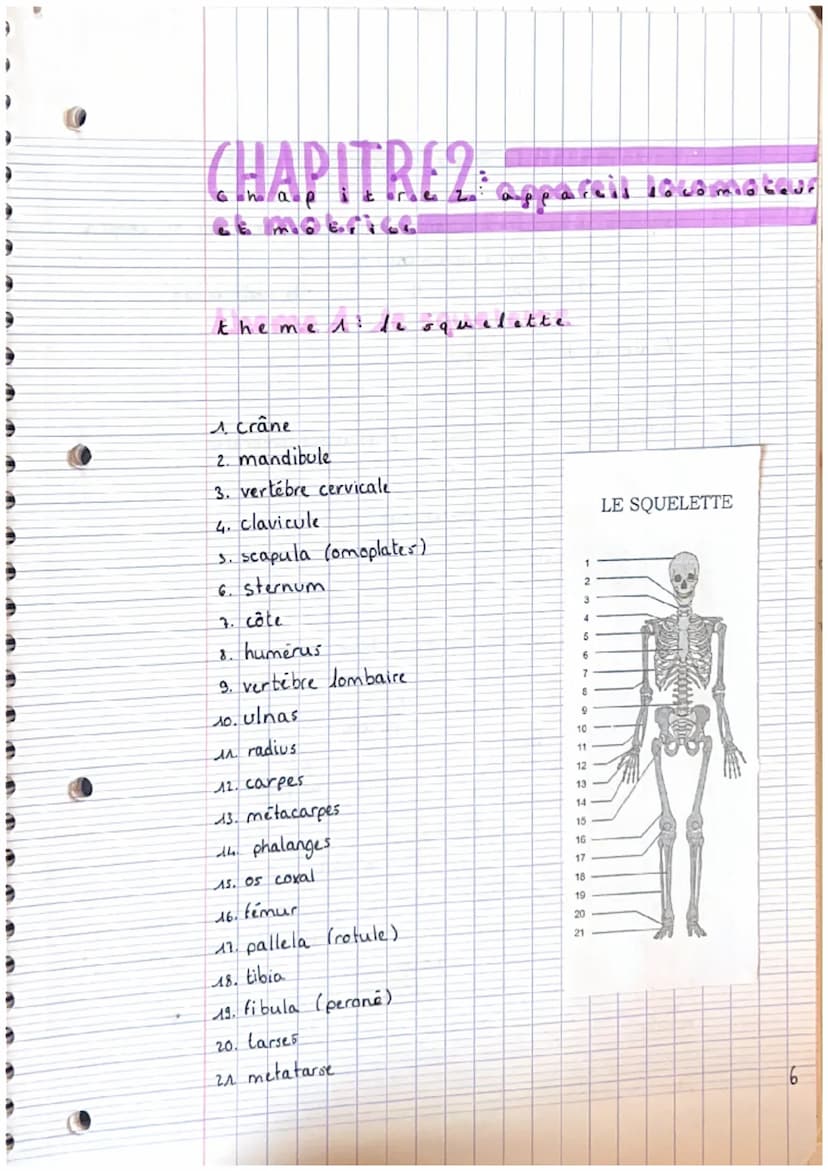 CHAPITRE 2:
Chapitre 2: appareil locomoteur
et motrice
theme 1: le squelette
1. crâne
2. mandibule
3. vertébre cervicale
4. clavicule
5. scapula (omoplates)
6. sternum
7. côte
8. humérus
9. vertébre lombaire
10. ulnas
11. radius
12. carpes
13. métacarpes
14. phalanges
15. os coxal
16. fémur
17. pallela (rotule)
18. tibia
19. fibula (peroné)
20. tarses
21 metatarse
LE SQUELETTE
1
2
3
4
5
6
7
8
9
10
11
12
13
14
15
16
17
18
19
20
21
6